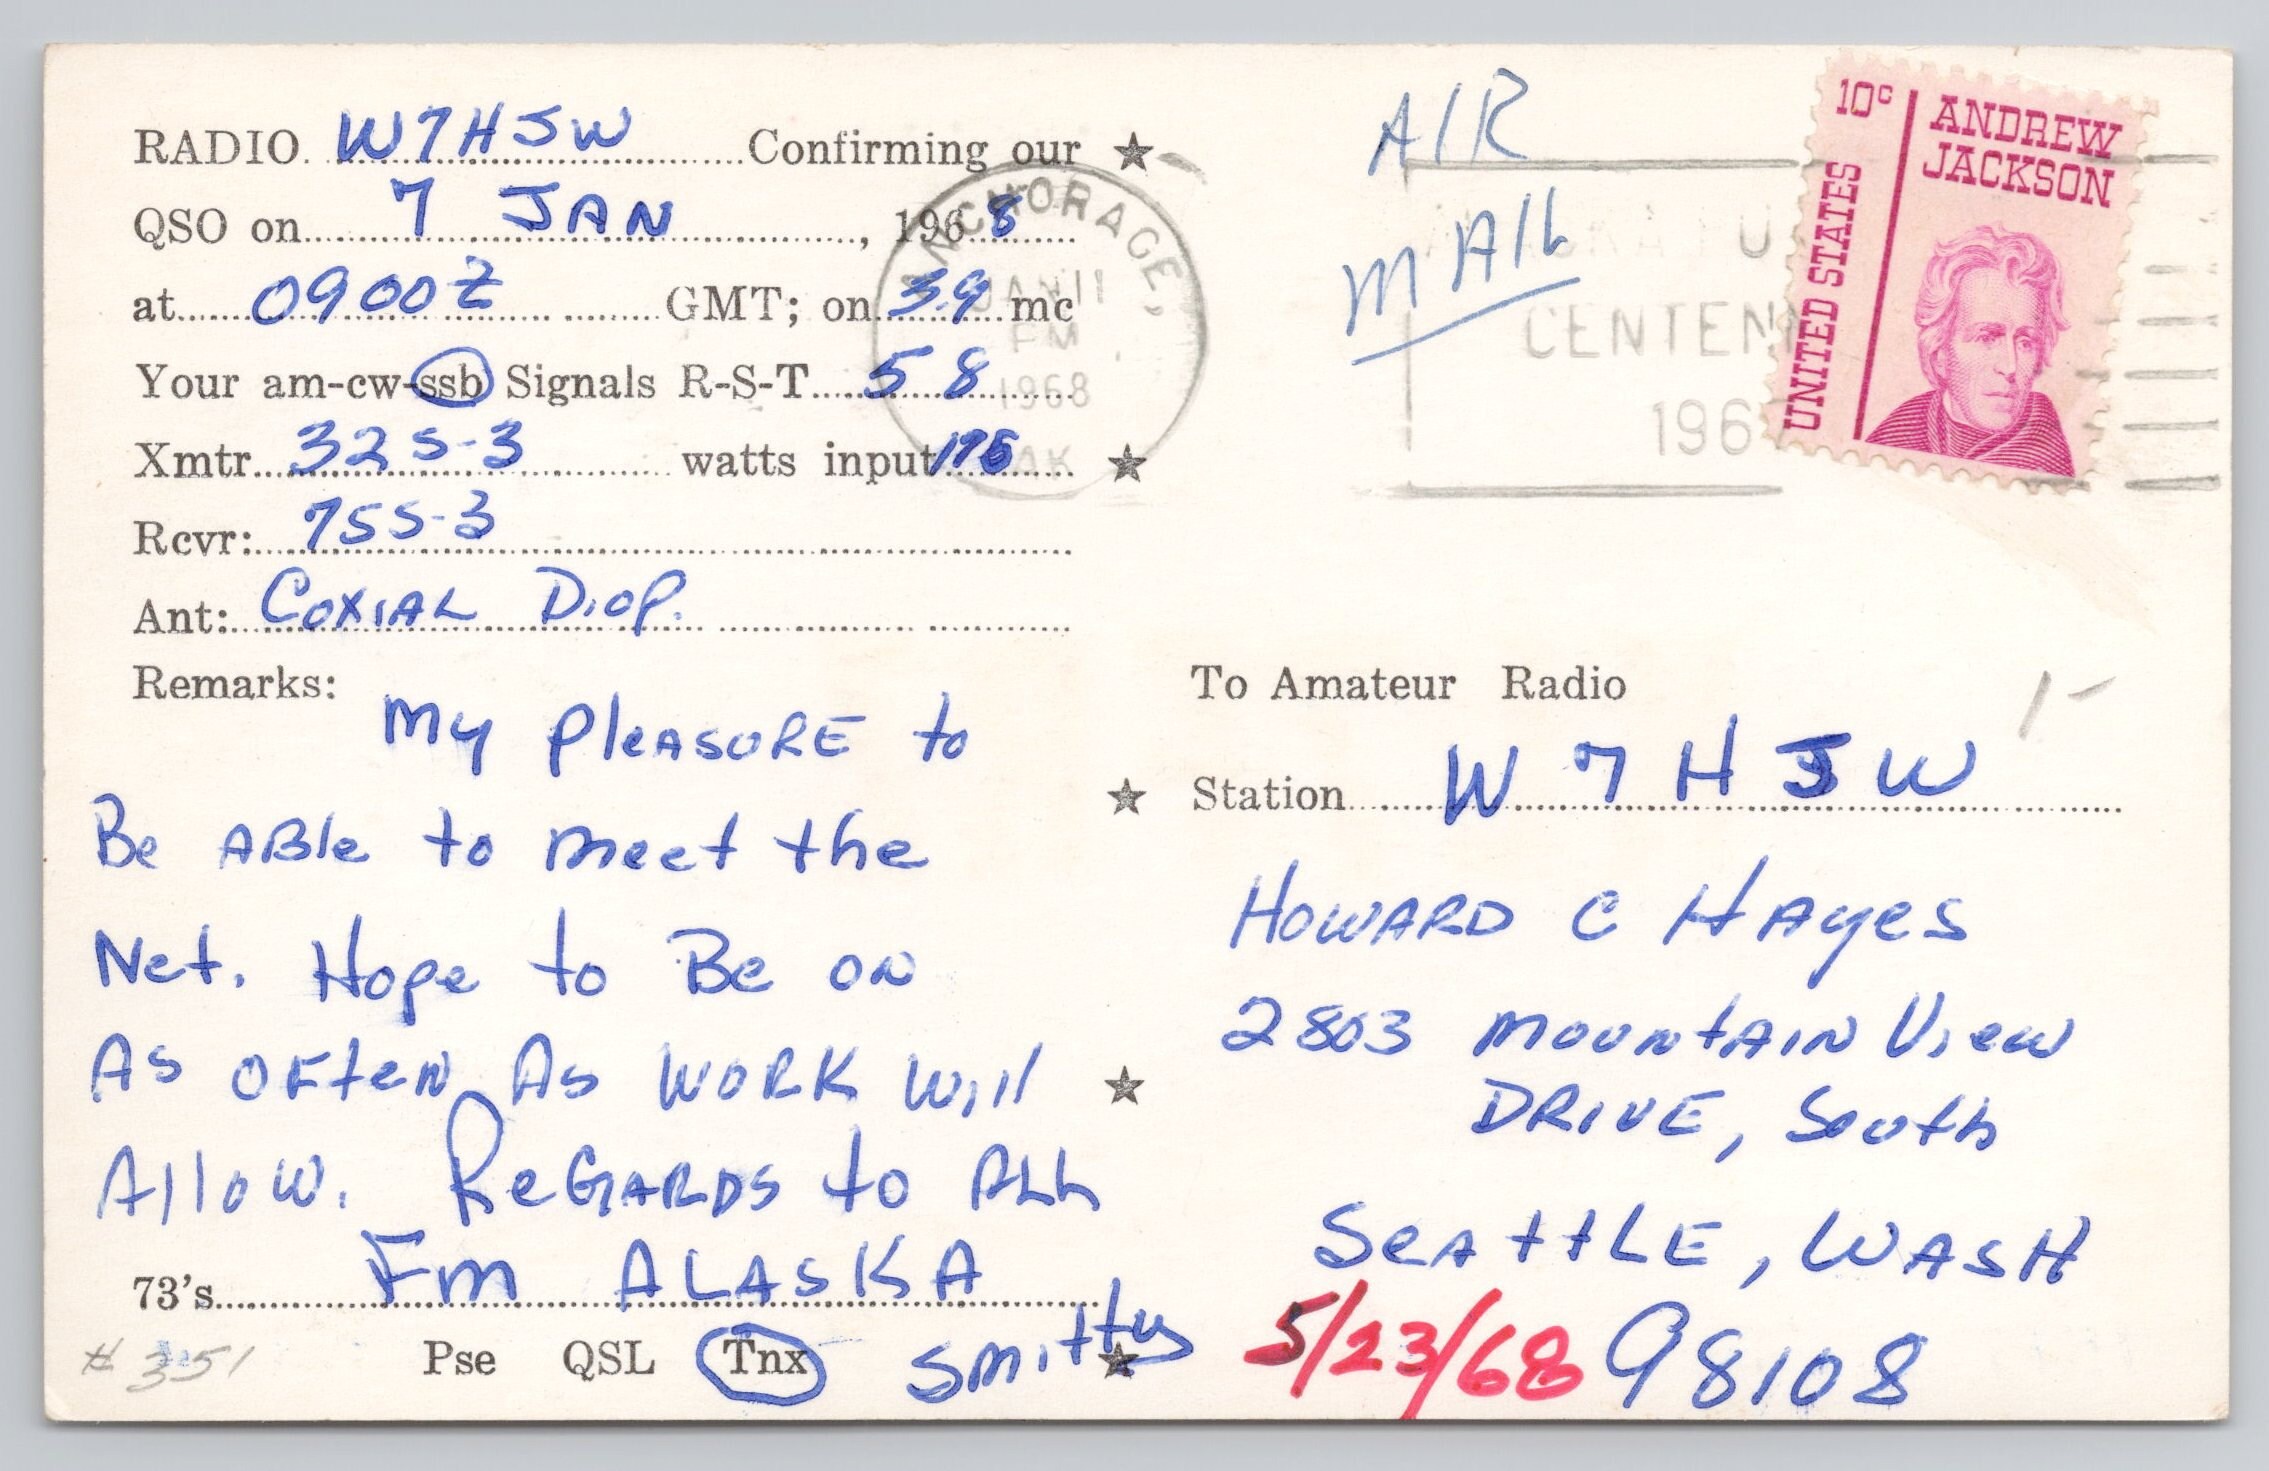 RADIO W7HJW Confirming our ★
QSO on 7 JAN, 1968
at 0900Z GMT; on 3.9 mc
Your am-cw-ssb Signals R-S-T 58
Xmtr 32S-3 watts input 175 ★
Rcvr: 75S-3
Ant: COXIAL DiOP.
Remarks:
My PleASURE to
Be ABle to meet the
Net. Hope to Be on
As OFten As WORK Will
Allow. ReGARDS to ALL
73's Fm ALASKA
Pse QSL Tnx Smitty ★
# 351
AIR
MAIL
ANCHORAGE,
JAN 11
PM
1968
AK
CENTEN
196
10c
ANDREW
JACKSON
UNITED STATES
To Amateur Radio
1-
★ Station W7HJW
HOWARD C HAyes
2803 mountAIN View
DRIVE, South
★
SeAttLE, WASH
5/23/68 98108